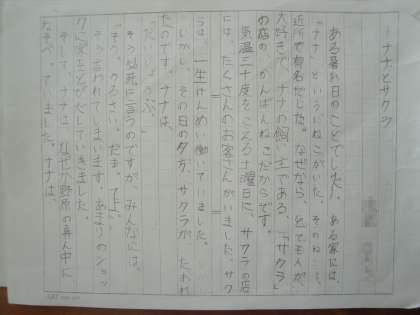 ナナとサクラ
ある暑い日のことでした。ある家には、
「ナナ」というねこがいた。そのねこは、
近所で有名だした。なぜなら、とても人が、
大好きで、ナナの飼い主である、「サクラ」
の店の、かんばんねこだからです。
気温三十度をこえる土曜日に、サクラの店
には、たくさんのお客さんがいました。サク
ラは、一生けんめい働いていました。
しかし、その日の夕方、サクラが、たおれ
たのです。ナナは、
「だいじょうぶ。」
そう必死に言うのですが、みんなには、
「もう、うるさい。だまってよ。」
そう言われてしまいます。あまりのショッ
クに家をとびだしていきました。
そして、ナナは、なぜか野原の真ん中に
いました。ナナは、